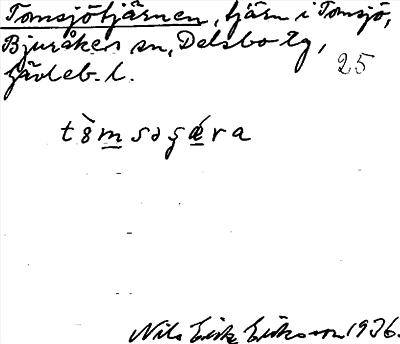 Tomsjötjärnen, tjärn i Tomsjö,
Bjuråkers sn, Delsbo tg,
Gävleb. l.
25
Nils Erik Eriksson 1936.